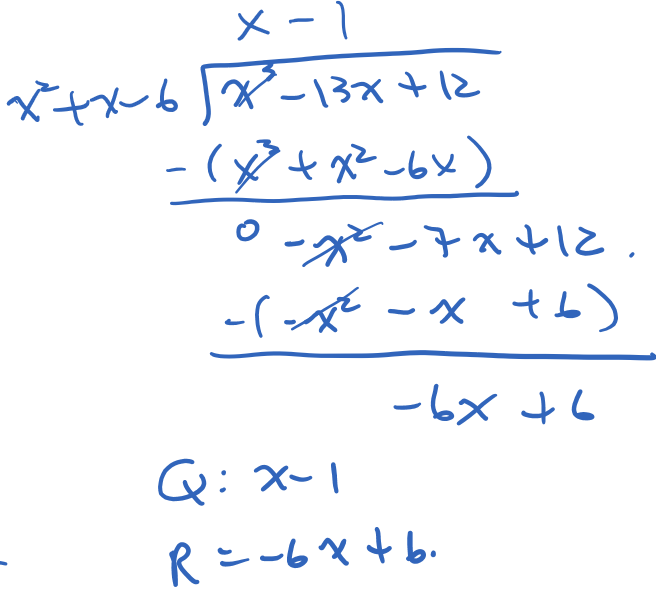 x - 1
x²+x-6 x³ - 13x + 12
-(x³ + x² - 6x)
0 - x² - 7x + 12.
-(-x² - x + 6)
-6x + 6
Q: x-1
R = -6x + 6.